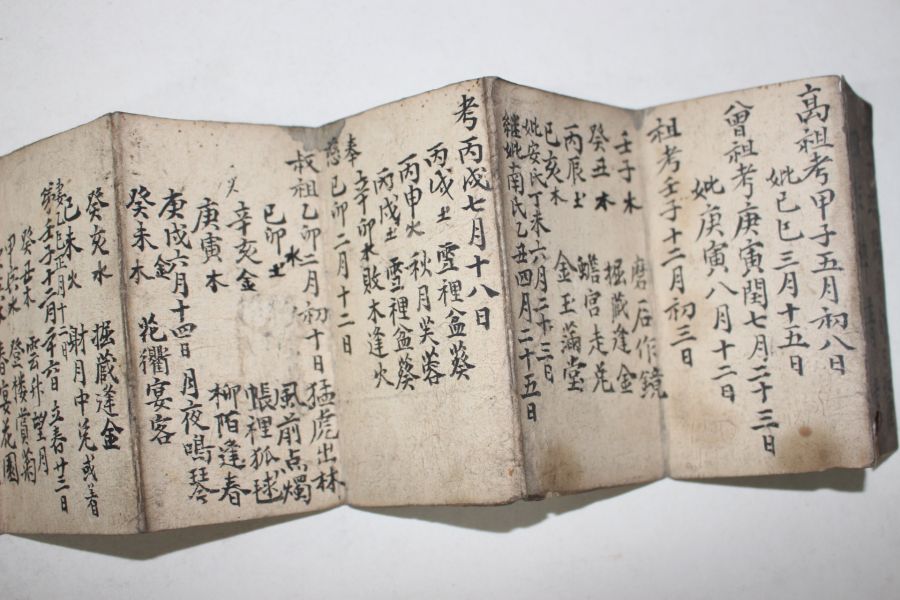 高祖考甲子五月初八日
妣己巳三月十五日
曾祖考庚寅閏七月二十三日
妣庚寅八月十二日
祖考壬子十二月初三日
壬子木 磨石作鏡
癸丑木 掘藏逢金
丙辰土 蟾宮走兎
己亥木 金玉滿堂
妣安氏丁未六月二十二日
継妣南氏乙丑四月二十五日
考丙戌七月十八日
丙戌土 雪裡盆葵
丙申火 秋月芙蓉
丙戌土 雪裡盆葵
辛卯水 敗木逢火
奉慈己卯二月十二日
叔祖乙卯二月初十日
乙卯水 猛虎出林
己卯土 風前点燭
辛亥金 帳裡狐毬
庚寅木 柳陌逢春
庚戌金六月十四日 月夜鳴琴
癸未木 花衢宴客
癸亥水 掘藏逢金
己未火 射月中兎或着
立春廿三日
癸丑木 雲外望月
登楼賞菊
春宴花園